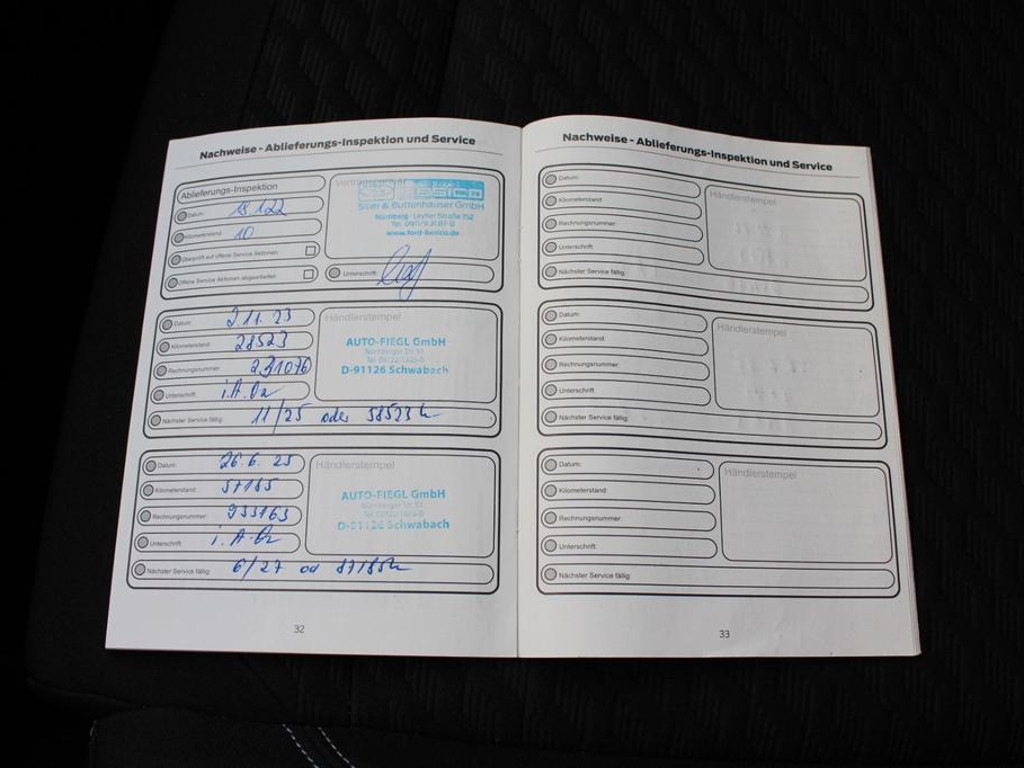 Nachweise - Ablieferungs-Inspektion und Service
Ablieferungs-Inspektion
Datum: 18.1.22
Kilometerstand: 10
Überprüft auf offene Service Aktionen:
Offene Service Aktionen abgearbeitet:
Siller & Buttenhauser GmbH
Nürnberg · Leyher Straße 152
Unterschrift:
Datum: 2.11.23
Kilometerstand: 28523
Rechnungsnummer:
Unterschrift: i.A.
Nächster Service fällig: 11/25 oder 58523 k
Händlerstempel
AUTO-FIEGL GmbH
D-91126 Schwabach
Datum: 26.6.25
Kilometerstand: 57185
Rechnungsnummer: 933163
Unterschrift: i.A.
Nächster Service fällig: 6/27 od 87185
Händlerstempel
AUTO-FIEGL GmbH
D-91126 Schwabach
32
Nachweise - Ablieferungs-Inspektion und Service
Datum:
Kilometerstand:
Rechnungsnummer:
Unterschrift:
Nächster Service fällig:
Händlerstempel
Datum:
Kilometerstand:
Rechnungsnummer:
Unterschrift:
Nächster Service fällig:
Händlerstempel
Datum:
Kilometerstand:
Rechnungsnummer:
Unterschrift:
Nächster Service fällig:
Händlerstempel
33